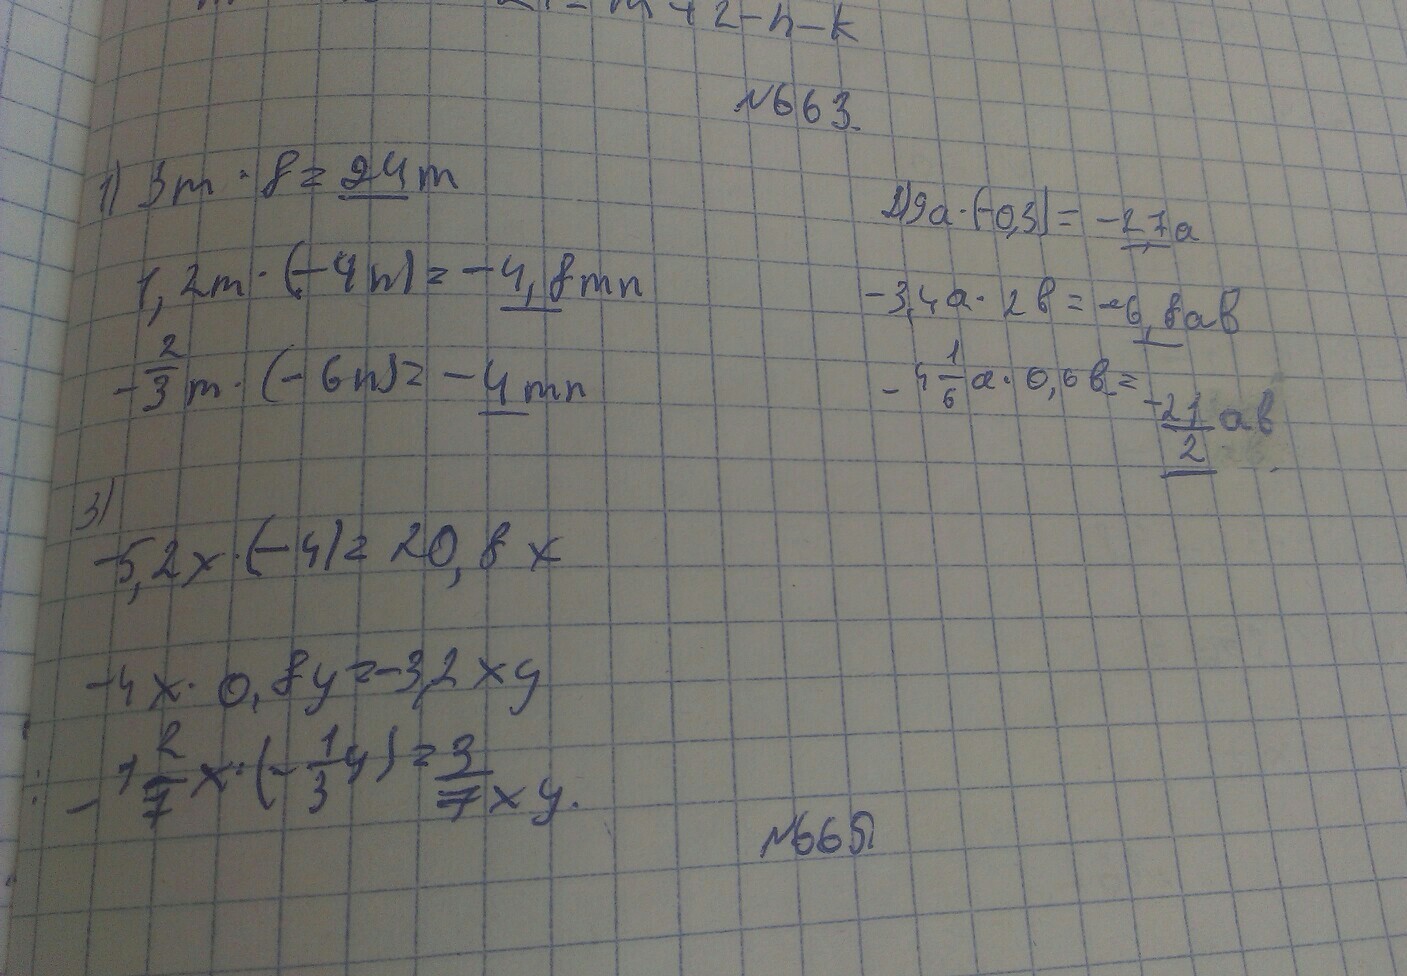 2 - n - k
№663.
1) 3m · 8 = 24m
1,2m · (-4n) = -4,8mn
-2/3 m · (-6n) = -4mn
2) 9a · (-0,3) = -2,7a
-3,4a · 2b = -6,8ab
-4 1/6 a · 0,6b = -21/2 ab
3)
-5,2x · (-4) = 20,8x
-4x · 0,8y = -3,2xy
-1 2/7 x · (-1/3 y) = 3/7 xy.
№665